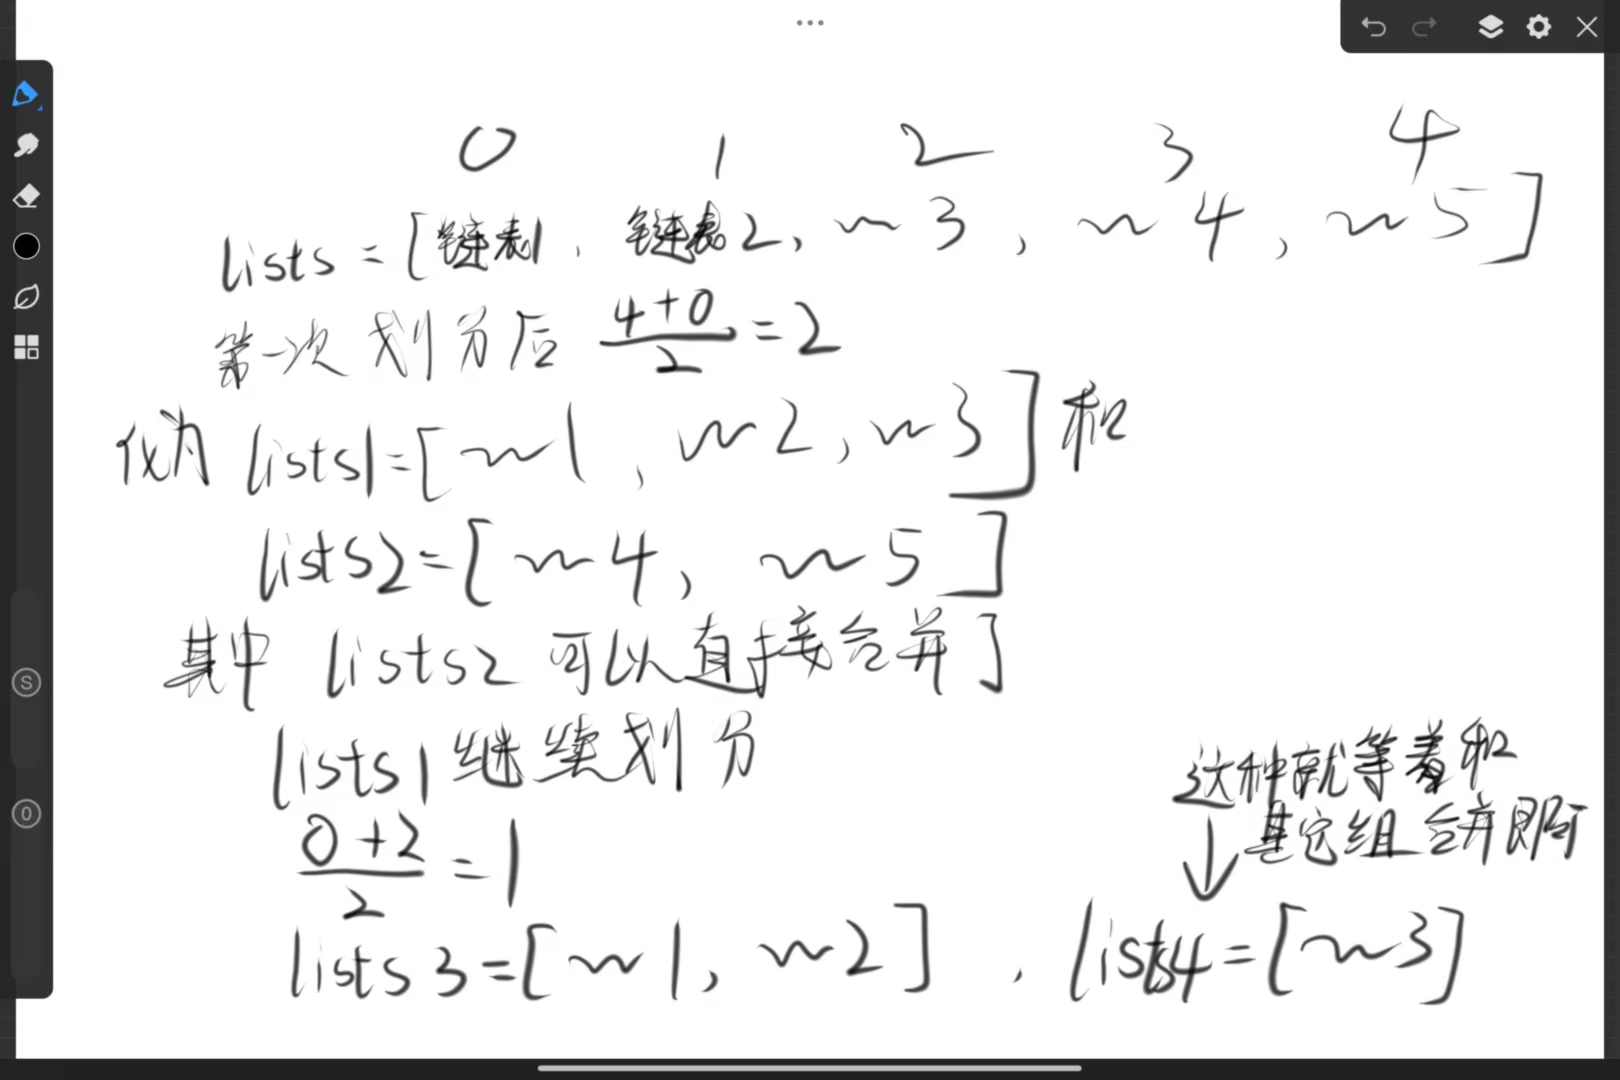 0 1 2 3 4
lists = [链表1, 链表2, ~3, ~4, ~5]
第一次划分后 (4+0)/2 = 2
化为 lists1=[~1, ~2, ~3] 和
lists2=[~4, ~5]
其中 lists2 可以直接合并]
lists1 继续划分
(0+2)/2 = 1
这种就等着和
其它组合并即可
↓
lists3=[~1, ~2] , lists4=[~3]
S
0